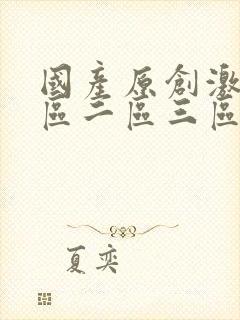 國產原創激
區二區三區
夏奕